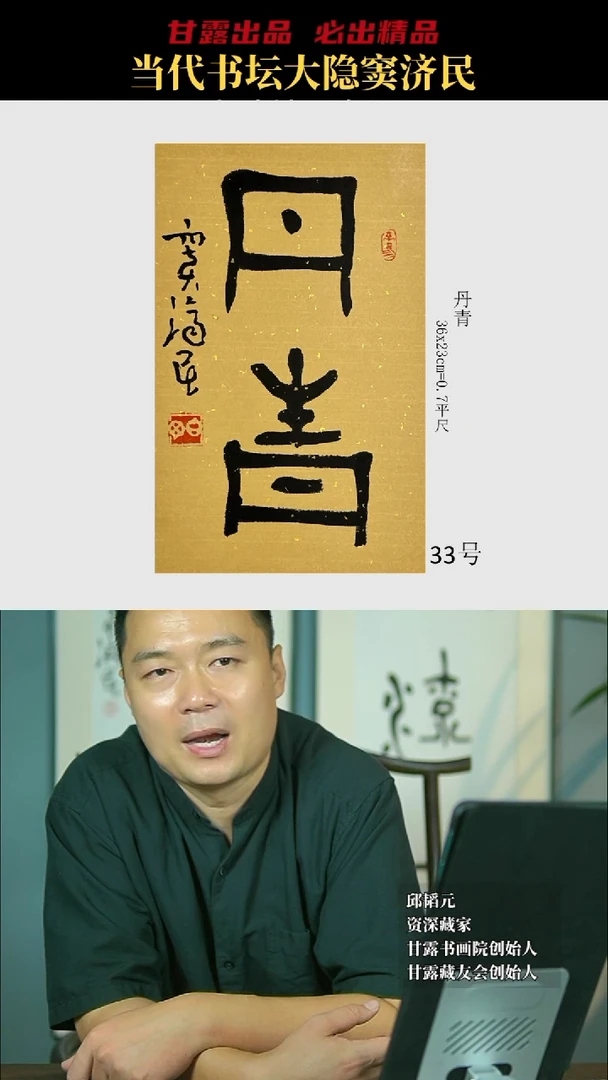 甘露出品 必出精品
当代书坛大隐窦济民
丹青
窦济民
丹青
36x23cm=0.7平尺
33号
邱韬元
资深藏家
甘露书画院创始人
甘露藏友会创始人